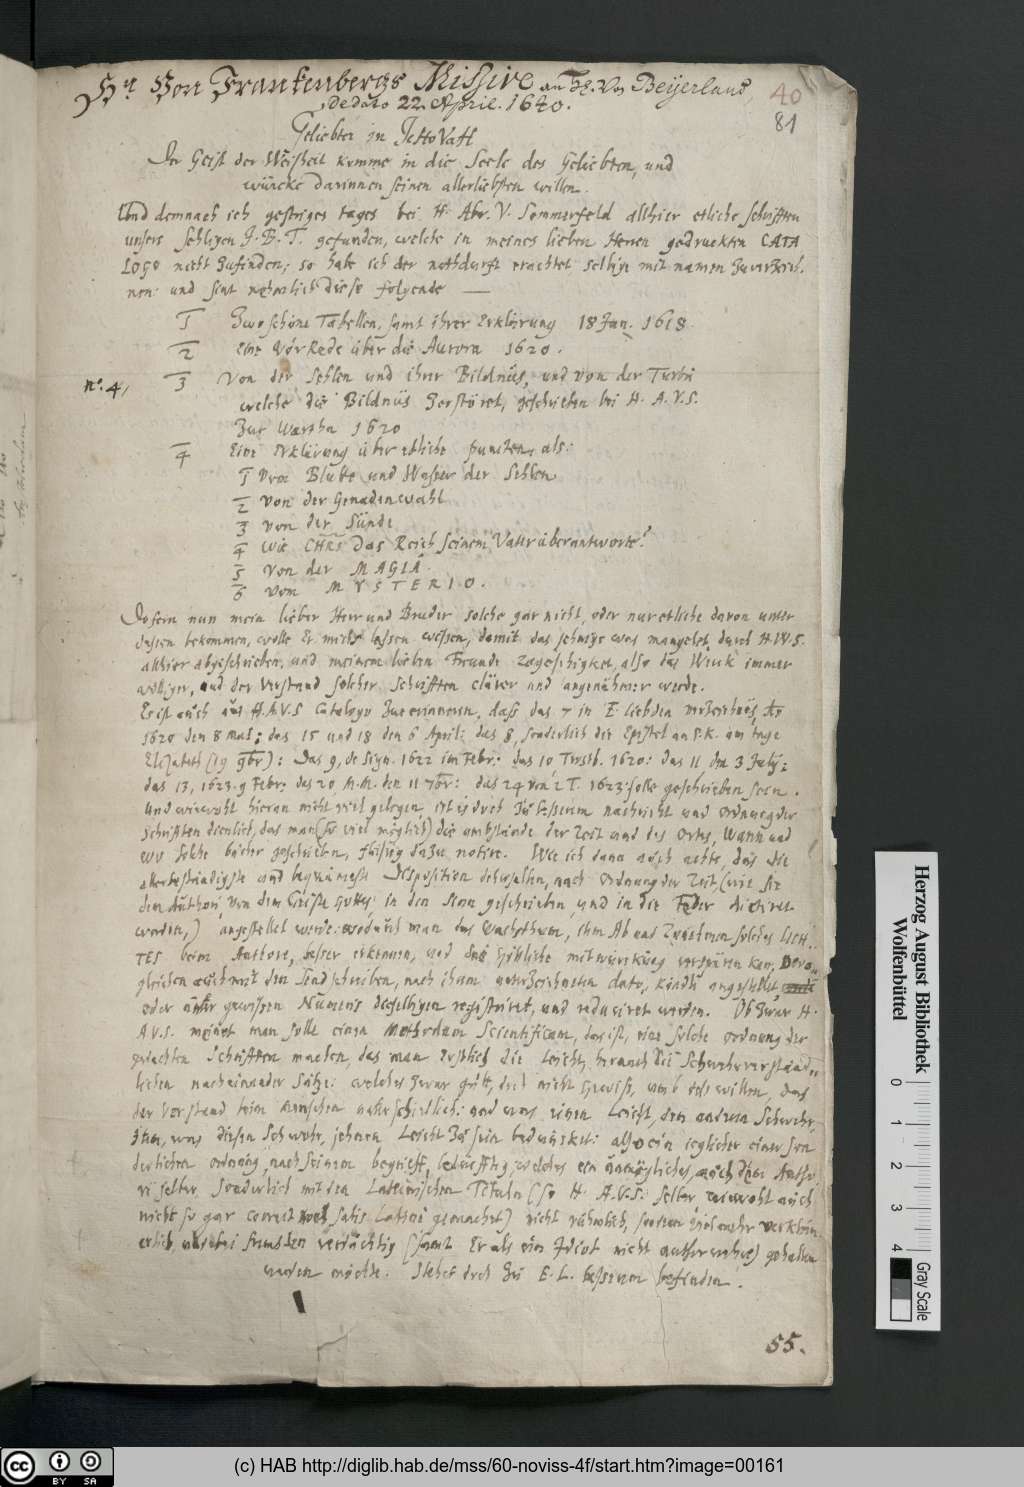 Hn Von Franckenbergs Missive an H. Vn Beÿerland,
de dato 22. April. 1640.
40
81
Geliebter in JeHoVaH
Der Geist der Weisheit komme in die Seele des Geliebten, und
würcke darinnen seinen allerliebsten willen.
Und demnach ich gestriges tages bei H. Abr. V. Sommerfeld allhier etliche schrifften
unsers Sehligen J. B. T. gefunden, welche in meines lieben Herren gedruckten CATA
LOGO nicht zufinden; so habe ich der nothdurft erachtet selbige mit namen zuverzeich.
nen: und sint nehmlich diese folgende
1 Zwo schöne Tabellen, samt ihrer Erklärung 18 Jan. 1618.
2 Eine Vor Rede über die Aurora 1620.
nº. 4,
3 Von der Sehlen und ihrer Bildnüs, und von der Turba
welche die Bildnüs zerstöret, geschrieben bei H. A. V. S.
zur Wartha 1620
4 Eine Erklärung über etliche puncten, als:
1 vom Blutte und Wasser der Sehlen
2 von der Genadenwahl
3 von der Sünde
4 wie CHRS das Reich seinem Vater überantworte?
5 von der MAGIA.
6 vom MYSTERIO.
Dofern nun mein lieber Herr und Bruder solche gar nicht, oder nur etliche davon unter
dessen bekommen, wolle Er mich lassen wissen, damit das jehnige was mangelet, durch H. V. S.
allhier abgeschrieben, und meinem lieben Freunde zugeschigket, also das Werck immer
völliger, und der Verstand solcher Schrifften clärer und angenähmer werde.
Es ist auch aus H. A. V. S Catalogo zuerinnern, dass das 7 in E. liebden verzeichnüs,
1620 den 8 Mai: das 15 und 18 den 6 April: das 8, sonderlich die Epistel an P. K. am tage
Elizabeth (19 9br): Das 9, de Sign. 1622 im Febr: das 10 1620: das 11 den 3 July:
das 13, 1623. 9 Febr: das 20, M. M. den 11 7br: das 24 von 2 T. 1623. solle geschrieben sein.
Und wiewohl hieran nicht viel gelegen, ist es doch zu besserem nachricht und ordnung der
schrifften dienlich, das man (so viel möglich) die umbstände der Zeit und des Ortes, Wann und
wo solche bücher geschrieben, fleissig dazu notire. Wie ich dann auch achte, das die
allerbeständigste und bequämeste Disposition derselben, nach ordnung der Zeit, (wie sie
dem Authori, von dem Geiste Gottes, in den Sinn geschrieben, und in die Feder dictiret
worden,) angestellet werde: wodurch man das Wachsthum, ihm Ab und Zunehmen solches LICH.
TES beim Authore, besser erkennen, und das Göttliche mitwürckung verspüren kan; Dero„
gleichen auch mit den Sendschreiben, nach ihrem unterzeichneten dato, angestellet,
oder unter gewissen Numeris dieselbigen registriret, und reduciret werden. Ob zwar H.
A. V. S. meinet man solle einen Methodum Scientificam, das ist, eine solche ordnung der
gedachten Schrifften machen, das man erstlich die leicht, hernach die Schwehrverständ„
lichen nacheinander setze: welches zwar gutt, doch nicht gewiss, umb dess willen, das
der Verstand beim Menschen unterschiedlich: und was einem leicht, dem andren Schwehr,
item, was diesen schwehr, jehnem leicht zu sein bedüncket: also ein ieglicher einer son
derlichen ordnung, nach seinem begrieff, bedürfftig, welches ein unmögliches, auch dem Autho
ri selber. Sonderlich mit den Lateinischen Tituln (so H. A. V. S. selber, wiewohl auch
nicht so gar correct noch satis Latine gemachet) nicht rühmlich, sondern vielmehr verklein
erlich, und bei fremden verdächtig (samt Er als ein Idiot nicht author wehre) gehalten
werden möchte. Stehet doch zu E. L. besserem befinden.
55.
Herzog August Bibliothek
Wolfenbüttel
0 1 2 3 4
Gray Scale
cc BY SA
(c) HAB http://diglib.hab.de/mss/60-noviss-4f/start.htm?image=00161